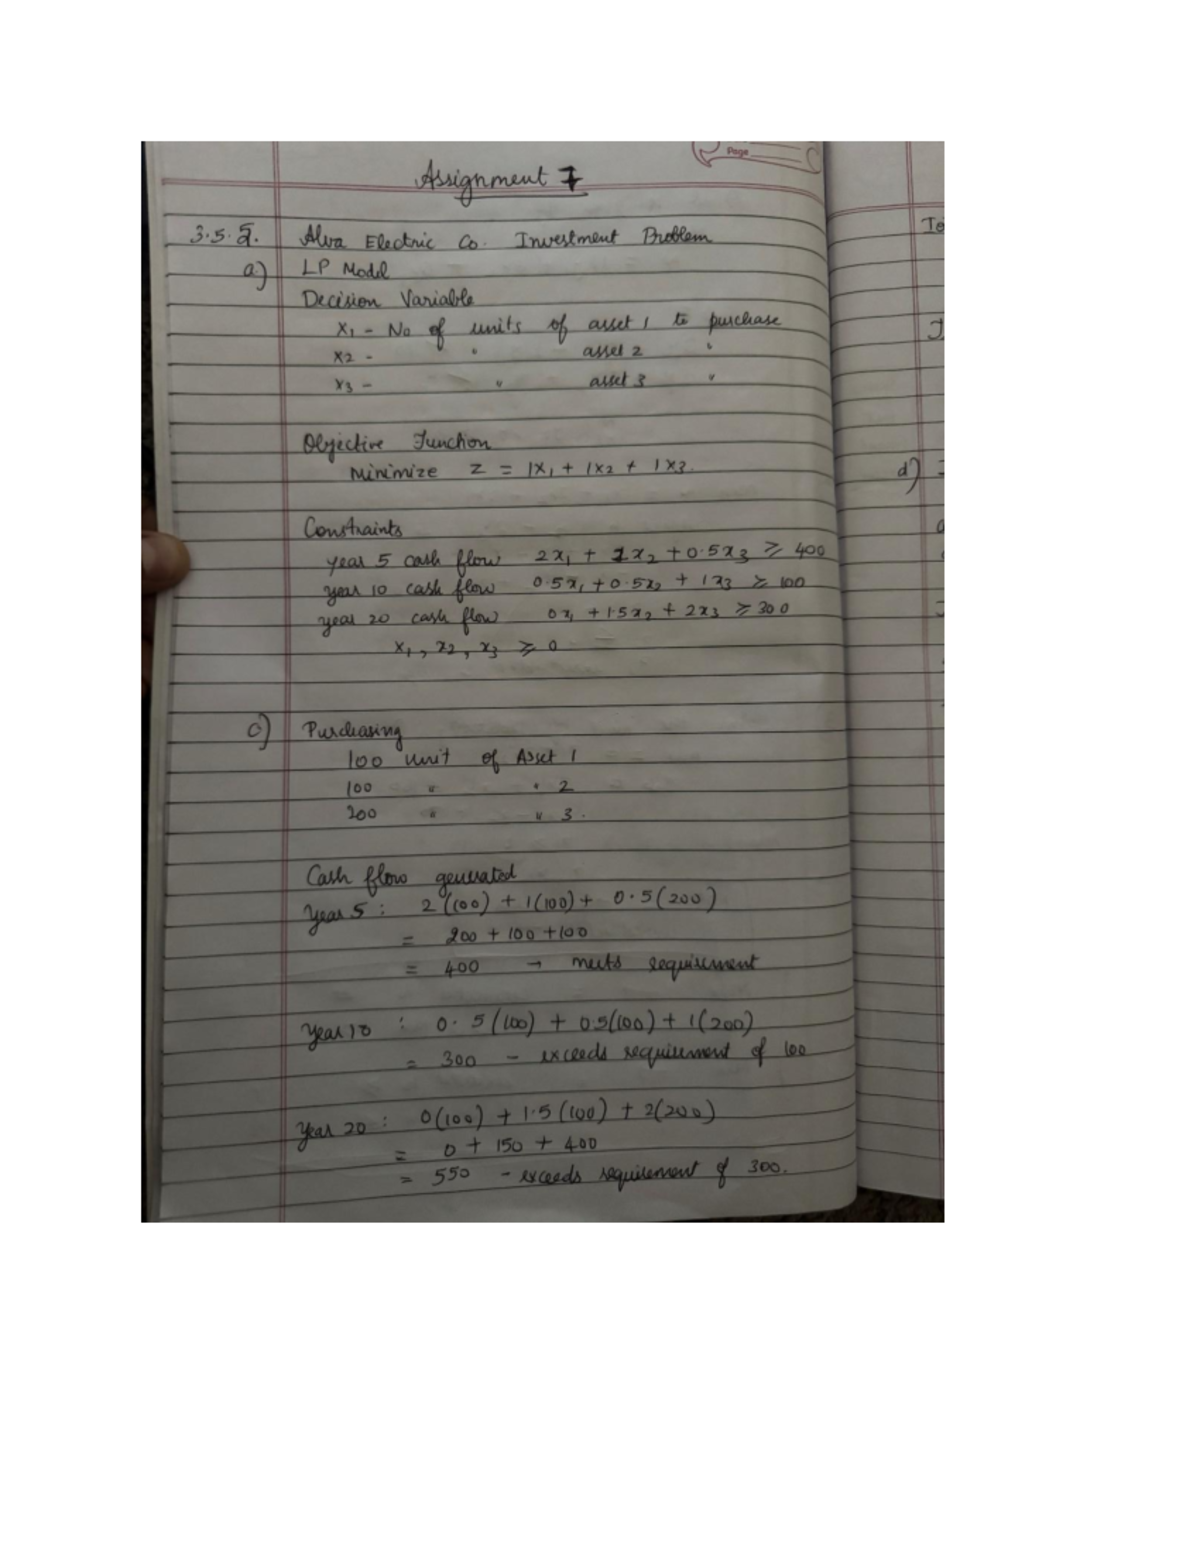 Page
Assignment 7
3.5.5. Alva Electric Co. Investment Problem
a) LP Model
Decision Variable
x1 - No of units of asset 1 to purchase
x2 - " asset 2 "
x3 - " asset 3 "
Objective Function
Minimize Z = 1x1 + 1x2 + 1x3.
Constraints
year 5 cash flow 2x1 + 1x2 + 0.5x3 ≥ 400
year 10 cash flow 0.5x1 + 0.5x2 + 1x3 ≥ 100
year 20 cash flow 0x1 + 1.5x2 + 2x3 ≥ 300
x1, x2, x3 ≥ 0
c) Purchasing
100 unit of Asset 1
100 " " 2
200 " " 3.
Cash flow generated
Year 5 : 2(100) + 1(100) + 0.5(200)
= 200 + 100 + 100
= 400 → meets requirement
Year 10 : 0.5(100) + 0.5(100) + 1(200)
= 300 - exceeds requirement of 100
Year 20 : 0(100) + 1.5(100) + 2(200)
= 0 + 150 + 400
= 550 - exceeds requirement of 300.
d)